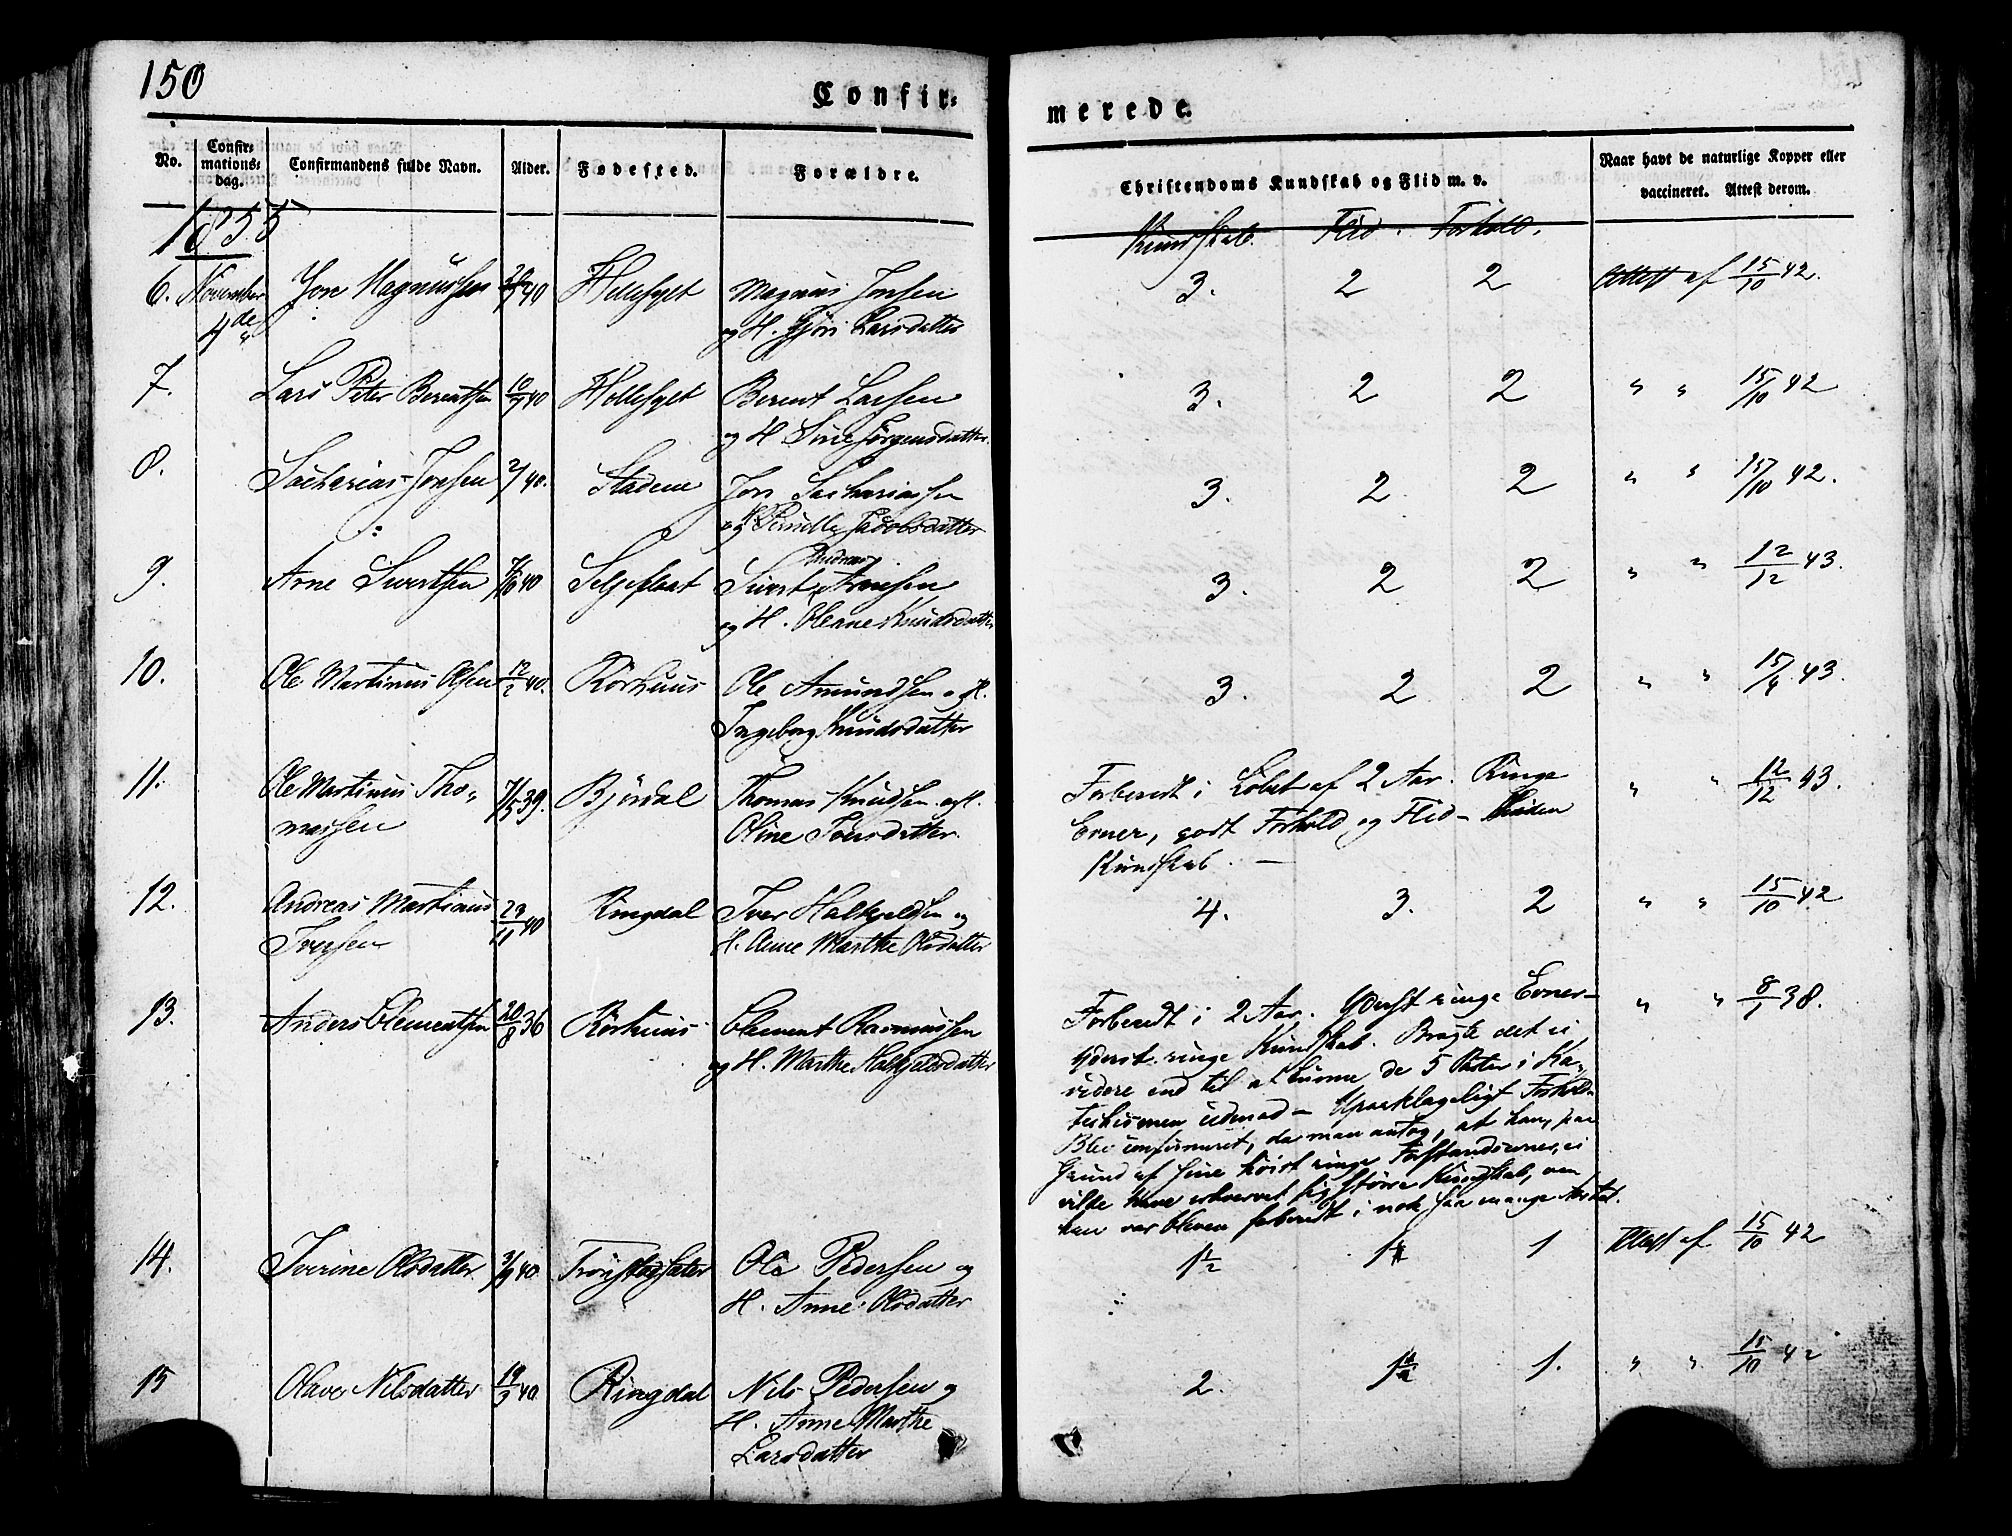 150
Confir-
merede.
No.
Confir-
mations-
dag.
Confirmandens fulde Navn.
Alder.
Fødested.
Forældre.
Christendoms Kundskab og Flid m. v.
Naar havt de naturlige Kopper eller
vaccineret. Attest derom.
1855
Kundskab. Flid. Forhold.
6. November Jon Magnussen 40 Hellesylt Magnus Jonsen 3. 2 2 Attest af 15/10 42.
4de og H. Larsdatter
7. Lars Peter Berentsen 10/7 40 Hellesylt Berent Larsen 3. 2 2 " " 15/10 42
og H. Sine Jørgensdatter.
8. Sacharias Jonsen 40. Stadene Jon Sachariassen 3. 2 2 " " 15/10 42.
og H. Pernille Jacobsdatter
Andreas
9. Arne Sivertsen 40 Seljeflaat Sivert Arnesen 3. 2 2 " " 12/12 43.
og H. Oleane Knudsdatter
10. Ole Martinus Olsen 12/2 40. Kørhuus Ole Amundsen og H. 3. 2 2 " " 15/4 43.
Ingeborg Knudsdatter
11. Ole Martinus Tho- 7/5 39. Bjørdal Thomas Knudsen og H. Forberedt i Løbet af 2 Aar. Ringe " " 12/12 43.
massen Oline Jonsdatter. Evner, godt Forhold og Flid – liden
Kundskab. –
12. Andreas Martinus 23/11 40 Ringdal Iver Halkjeldsen og 4. 3. 2 " " 15/10 42
Iversen H. Anne Marthe Olsdatter
13. Anders Clementsen 20/8 36 Kørhuus Clement Rasmussen Forberedt i 2 Aar. Yderst ringe Evner – " " 8/1 38.
og H. Marthe Halkjeldsdatter yderst ringe Kundskab. Bragte det ei
videre end til at kunne de 5 Parter i Ka-
techismen udenad – Upaaklageligt Forhold.
Blev confirmeret, da man antog, at han, paa
Grund af sine høist ringe Forstandsevner, ei
vilde have erhvervet sig større Kundskab, om
han var bleven forberedt i nok saa mange Aar
14. Iverine Olsdatter 40. Ole Pedersen og 1½ 1 1 Attest af 15/10 42
H. Anne Olsdatter
15 Olave Nilsdatter 40. Ringdal Nils Pedersen og 2. 1½ 1. " " 15/10 42
H. Anne Marthe
Larsdatter